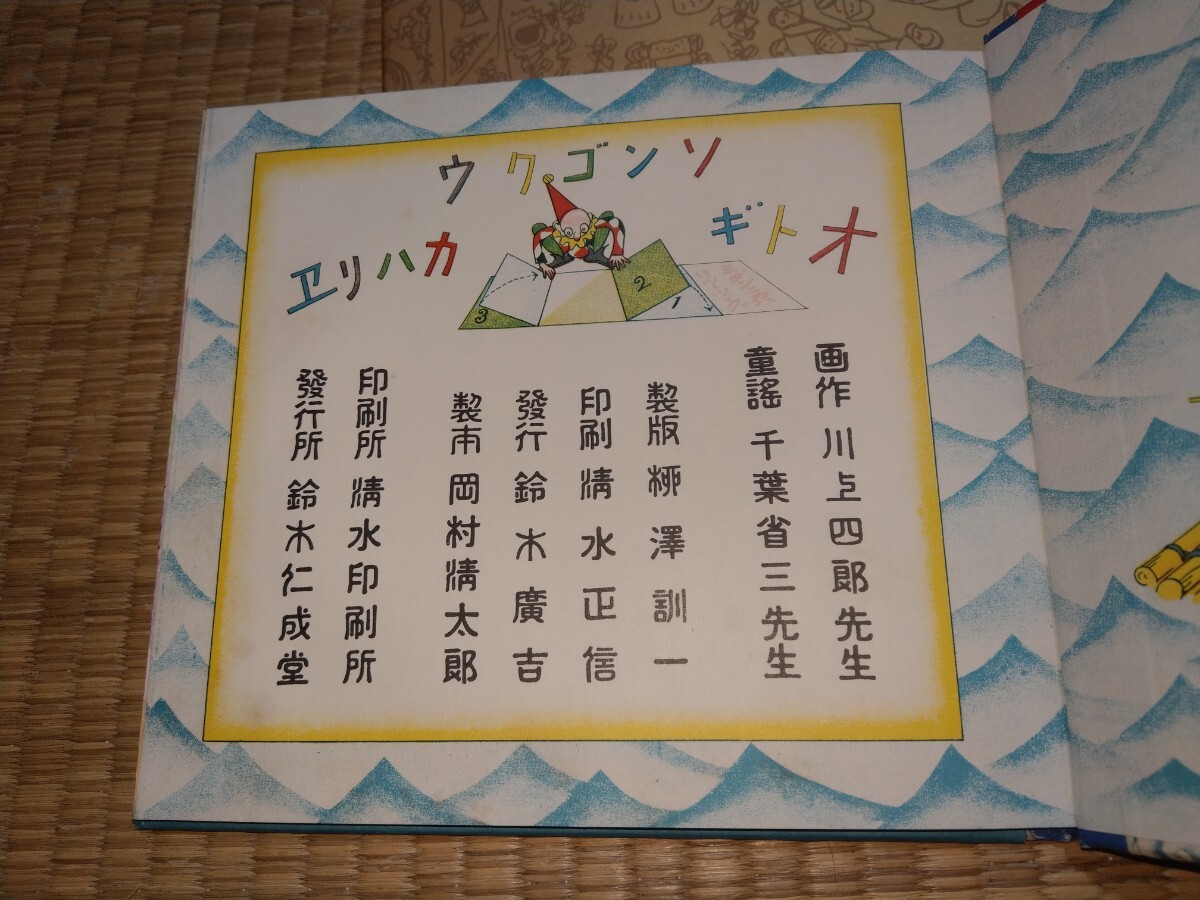 ソンゴクウ
オトギ
カハリヱ
1
2
3
画作 川上四郎先生
童謠 千葉省三先生
製版 柳澤訓一
印刷 清水正信
發行 鈴木廣吉
製本 岡村清太郎
印刷所 清水印刷所
發行所 鈴木仁成堂